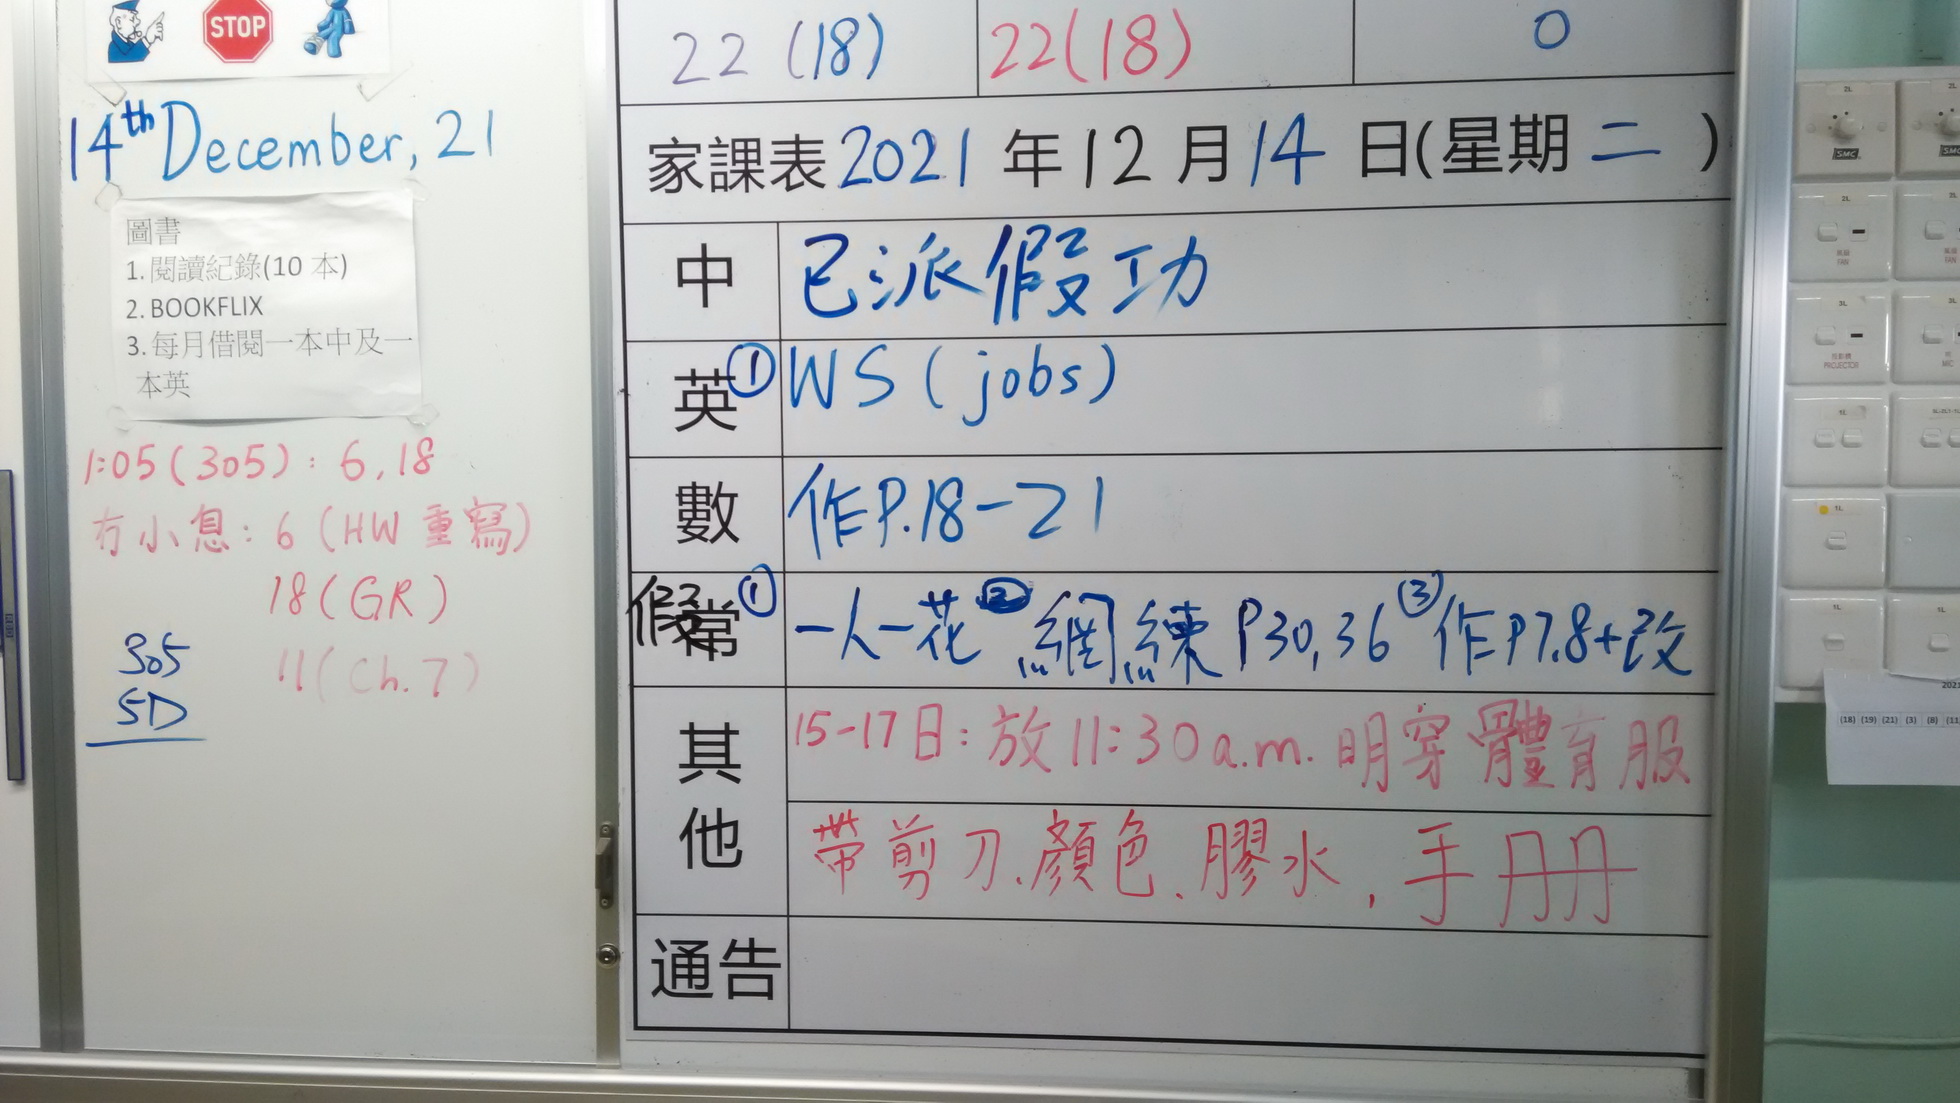 STOP
14th December, 21
圖書
1. 閱讀紀錄(10 本)
2. BOOKFLIX
3. 每月借閱一本中及一
本英
1:05(305): 6, 18
冇小息: 6 (HW 重寫)
18 (GR)
11 (Ch.7)
305
5D
22 (18) 22(18) 0
家課表 2021 年 12 月 14 日(星期 二 )
中 已派假功
英 ① WS (jobs)
數 作P.18-21
假常 ① 一人一花 ② 網練 P30,36 ③ 作P7,8+改
其他 15-17日: 放11:30a.m. 明穿體育服
帶剪刀、顏色、膠水, 手冊
通告
2L
SMC
2L
FAN
3L
PROJECTOR
MIC
1L
1L
1L
2021
(18) (19) (21) (3) (8) (11